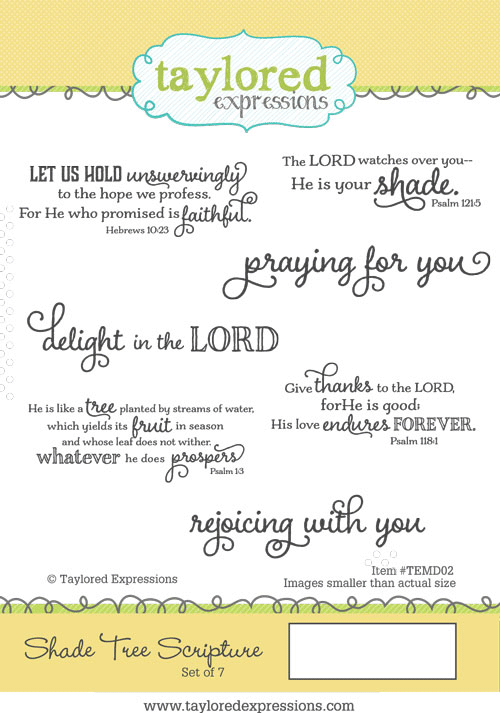 taylored
expressions
LET US HOLD unswervingly
to the hope we profess.
For He who promised is faithful.
Hebrews 10:23
The LORD watches over you--
He is your shade.
Psalm 121:5
praying for you
delight in the LORD
He is like a tree planted by streams of water,
which yields its fruit in season
and whose leaf does not wither.
whatever he does prospers
Psalm 1:3
Give thanks to the LORD,
forHe is good;
His love endures FOREVER.
Psalm 118:1
rejoicing with you
© Taylored Expressions
Item #TEMD02
Images smaller than actual size
Shade Tree Scripture
Set of 7
www.tayloredexpressions.com